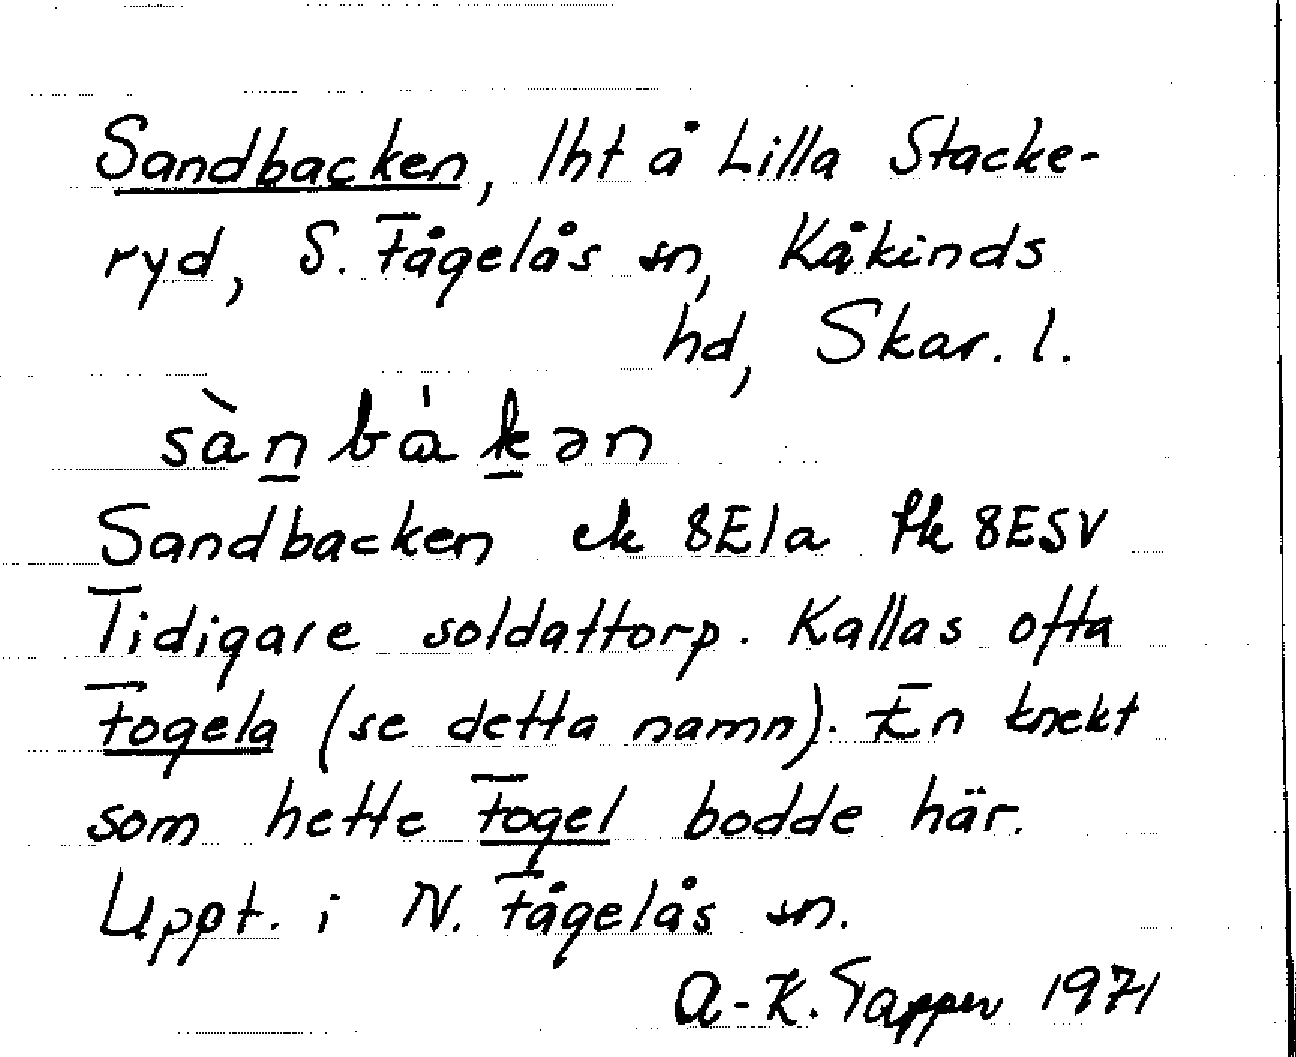 Sandbacken, lht å Lilla Stacke-
ryd, S. Fågelås sn, Kåkinds
hd, Skar. l.
sàn̲bɑ̍k̲ən
Sandbacken ek 8E1a fk 8E5V
Tidigare soldattorp. Kallas ofta
Fogela (se detta namn). En knekt
som hette Fogel bodde här.
Uppt. i N. Fågelås sn.
A-K. Tapper 1971